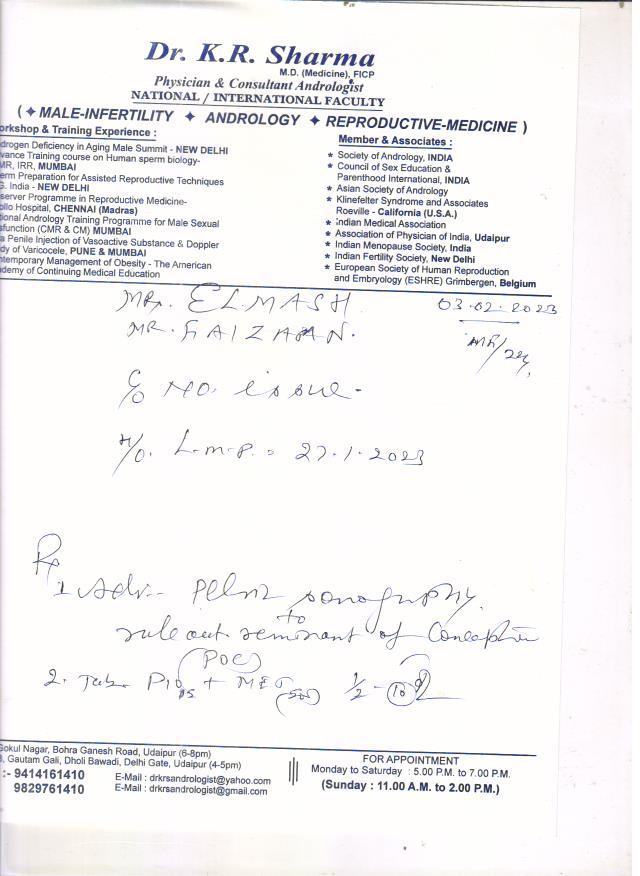 Dr. K.R. Sharma
M.D. (Medicine), FICP
Physician & Consultant Andrologist
NATIONAL / INTERNATIONAL FACULTY
( ✦ MALE-INFERTILITY ✦ ANDROLOGY ✦ REPRODUCTIVE-MEDICINE )
orkshop & Training Experience :
drogen Deficiency in Aging Male Summit - NEW DELHI
vance Training course on Human sperm biology-
MR, IRR, MUMBAI
erm Preparation for Assisted Reproductive Techniques
G. India - NEW DELHI
server Programme in Reproductive Medicine-
ollo Hospital, CHENNAI (Madras)
tional Andrology Training Programme for Male Sexual
sfunction (CMR & CM) MUMBAI
a Penile Injection of Vasoactive Substance & Doppler
dy of Varicocele, PUNE & MUMBAI
ntemporary Management of Obesity - The American
demy of Continuing Medical Education
Member & Associates :
★ Society of Andrology, INDIA
★ Council of Sex Education &
Parenthood International, INDIA
★ Asian Society of Andrology
★ Klinefelter Syndrome and Associates
Roeville - California (U.S.A.)
★ Indian Medical Association
★ Association of Physician of India, Udaipur
★ Indian Menopause Society, India
★ Indian Fertility Society, New Delhi
★ European Society of Human Reproduction
and Embryology (ESHRE) Grimbergen, Belgium
ELMASH
03.02.2023
MR. FAIZAAN.
C/O NO. issue -
H/O. L.m.p. = 27.1.2023
Rx
1 Adv- Pelvic sonography
to
rule out remnant of Conception
(POC)
2. Tab. PIO 15 + MET (500) 1/2 - 10
Gokul Nagar, Bohra Ganesh Road, Udaipur (6-8pm)
, Gautam Gali, Dholi Bawadi, Delhi Gate, Udaipur (4-5pm)
:- 9414161410
9829761410
E-Mail : drkrsandrologist@yahoo.com
E-Mail : drkrsandrologist@gmail.com
FOR APPOINTMENT
Monday to Saturday : 5.00 P.M. to 7.00 P.M.
(Sunday : 11.00 A.M. to 2.00 P.M.)